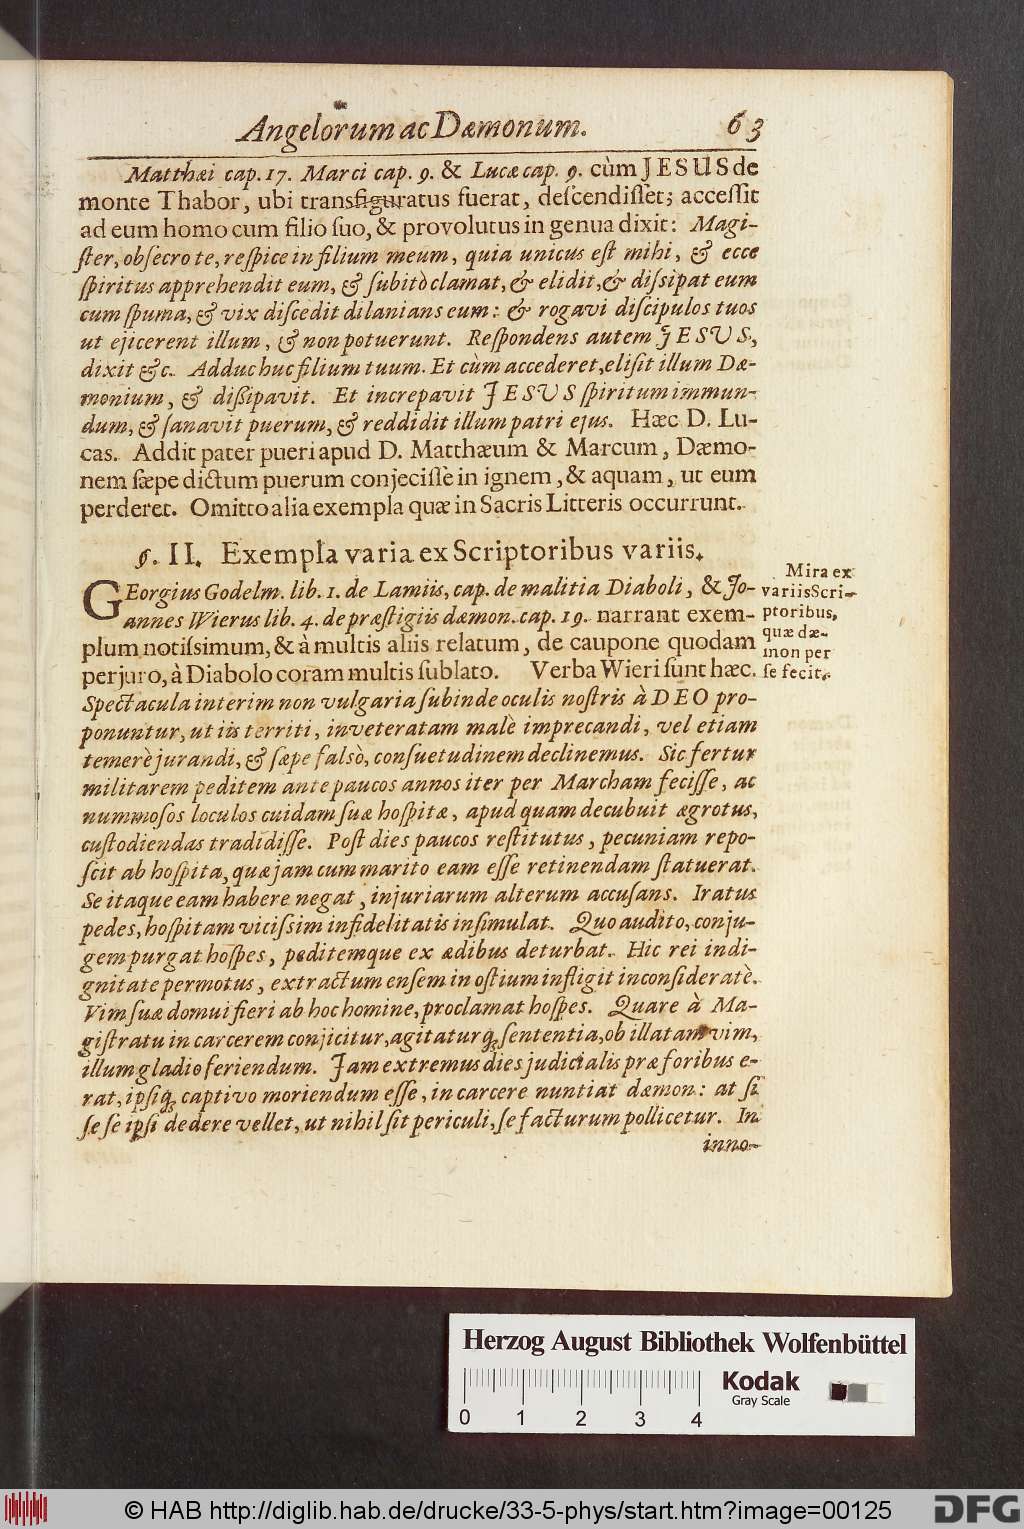 Angelorum ac Dæmonum. 63
Matthæi cap. 17. Marci cap. 9. & Lucæ cap. 9. cùm JESUS de
monte Thabor, ubi transfiguratus fuerat, deſcendiſſet; acceſſit
ad eum homo cum filio ſuo, & provolutus in genua dixit: Magi-
ſter, obſecro te, reſpice in filium meum, quia unicus eſt mihi, & ecce
ſpiritus apprehendit eum, & ſubitò clamat, & elidit, & diſsipat eum
cum ſpuma, & vix diſcedit dilanians eum: & rogavi diſcipulos tuos
ut ejicerent illum, & non potuerunt. Reſpondens autem JESUS,
dixit &c. Adduc huc filium tuum. Et cùm accederet, eliſit illum Dæ-
monium, & diſsipavit. Et increpavit JESUS ſpiritum immun-
dum, & ſanavit puerum, & reddidit illum patri ejus. Hæc D. Lu-
cas. Addit pater pueri apud D. Matthæum & Marcum, Dæmo-
nem ſæpe dictum puerum conjeciſſè in ignem, & aquam, ut eum
perderet. Omitto alia exempla quæ in Sacris Litteris occurrunt.
§. II. Exempla varia ex Scriptoribus variis.
GEorgius Godelm. lib. 1. de Lamiis, cap. de malitia Diaboli, & Jo-
annes Wierus lib. 4. de præſtigiis dæmon. cap. 19. narrant exem-
plum notiſsimum, & à multis aliis relatum, de caupone quodam
perjuro, à Diabolo coram multis ſublato. Verba Wieri ſunt hæc.
Mira ex
variis Scri-
ptoribus,
quæ dæ-
mon per
ſe fecit.
Spectacula interim non vulgaria ſubinde oculis noſtris à DEO pro-
ponuntur, ut iis territi, inveteratam malè imprecandi, vel etiam
temerè jurandi, & ſæpe falsò, conſuetudinem declinemus. Sic fertur
militarem peditem ante paucos annos iter per Marcham feciſſe, ac
nummoſos loculos cuidam ſuæ hoſpitæ, apud quam decubuit ægrotus,
cuſtodiendas tradidiſſe. Poſt dies paucos reſtitutus, pecuniam repo-
ſcit ab hoſpita, quæ jam cum marito eam eſſe retinendam ſtatuerat.
Se itaque eam habere negat, injuriarum alterum accuſans. Iratus
pedes, hoſpitam viciſsim infidelitatis inſimulat. Quo audito, conju-
gem purgat hoſpes, peditemque ex ædibus deturbat. Hic rei indi-
gnitate permotus, extractum enſem in oſtium infligit inconſideratè.
Vim ſuæ domui fieri ab hoc homine, proclamat hoſpes. Quare à Ma-
giſtratu in carcerem conjicitur, agitaturq; ſententia, ob illatam vim,
illum gladio feriendum. Jam extremus dies judicialis præ foribus e-
rat, ipſiq; captivo moriendum eſſe, in carcere nuntiat dæmon: at ſi
ſe ſe ipſi dedere vellet, ut nihil ſit periculi, ſe facturum pollicetur. In
inno-
Herzog August Bibliothek Wolfenbüttel
0 1 2 3 4
Kodak
Gray Scale
© HAB http://diglib.hab.de/drucke/33-5-phys/start.htm?image=00125
DFG